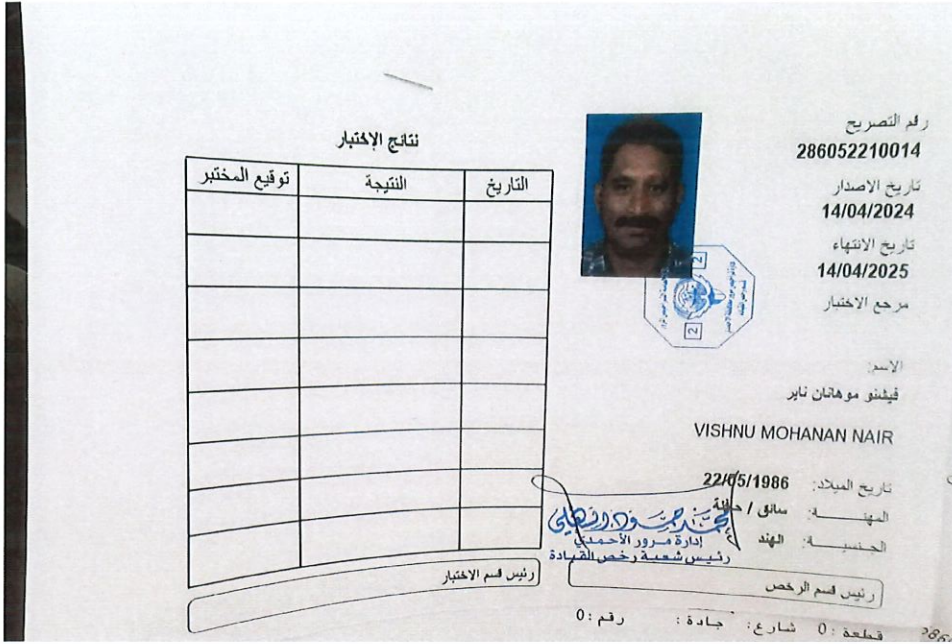 رقم التصريح
286052210014
تاريخ الاصدار
14/04/2024
تاريخ الانتهاء
14/04/2025
مرجع الاختبار
الاسم:
فيشنو موهانان ناير
VISHNU MOHANAN NAIR
تاريخ الميلاد: 22/05/1986
المهنـــــة: سائق /
الجنسيـــــة: الهند
إدارة مرور الأحمدي
رئيس شعبة رخص القيادة
رئيس قسم الرخص
قطعة :0 شارع: جادة: رقم :0
نتائج الإختبار
التاريخ النتيجة توقيع المختبر
رئيس قسم الاختبار
2
2